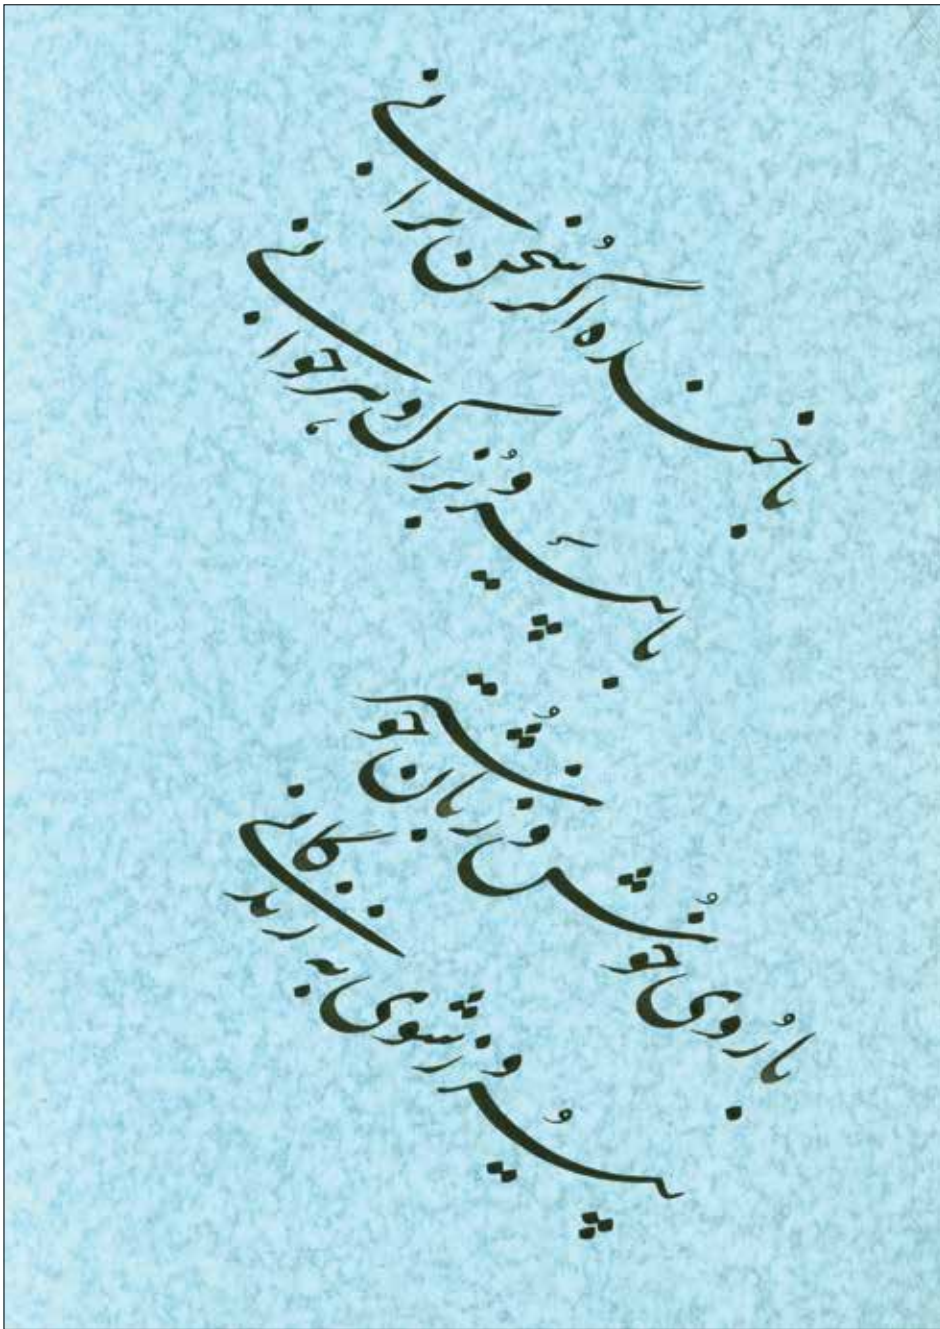 با خنده اگر سُخن برانی
با پیر و بُزرگ و هر جوانی
با رُوی خُوش و زبان خُوشتر
پیرُوز شوی به زندگانی